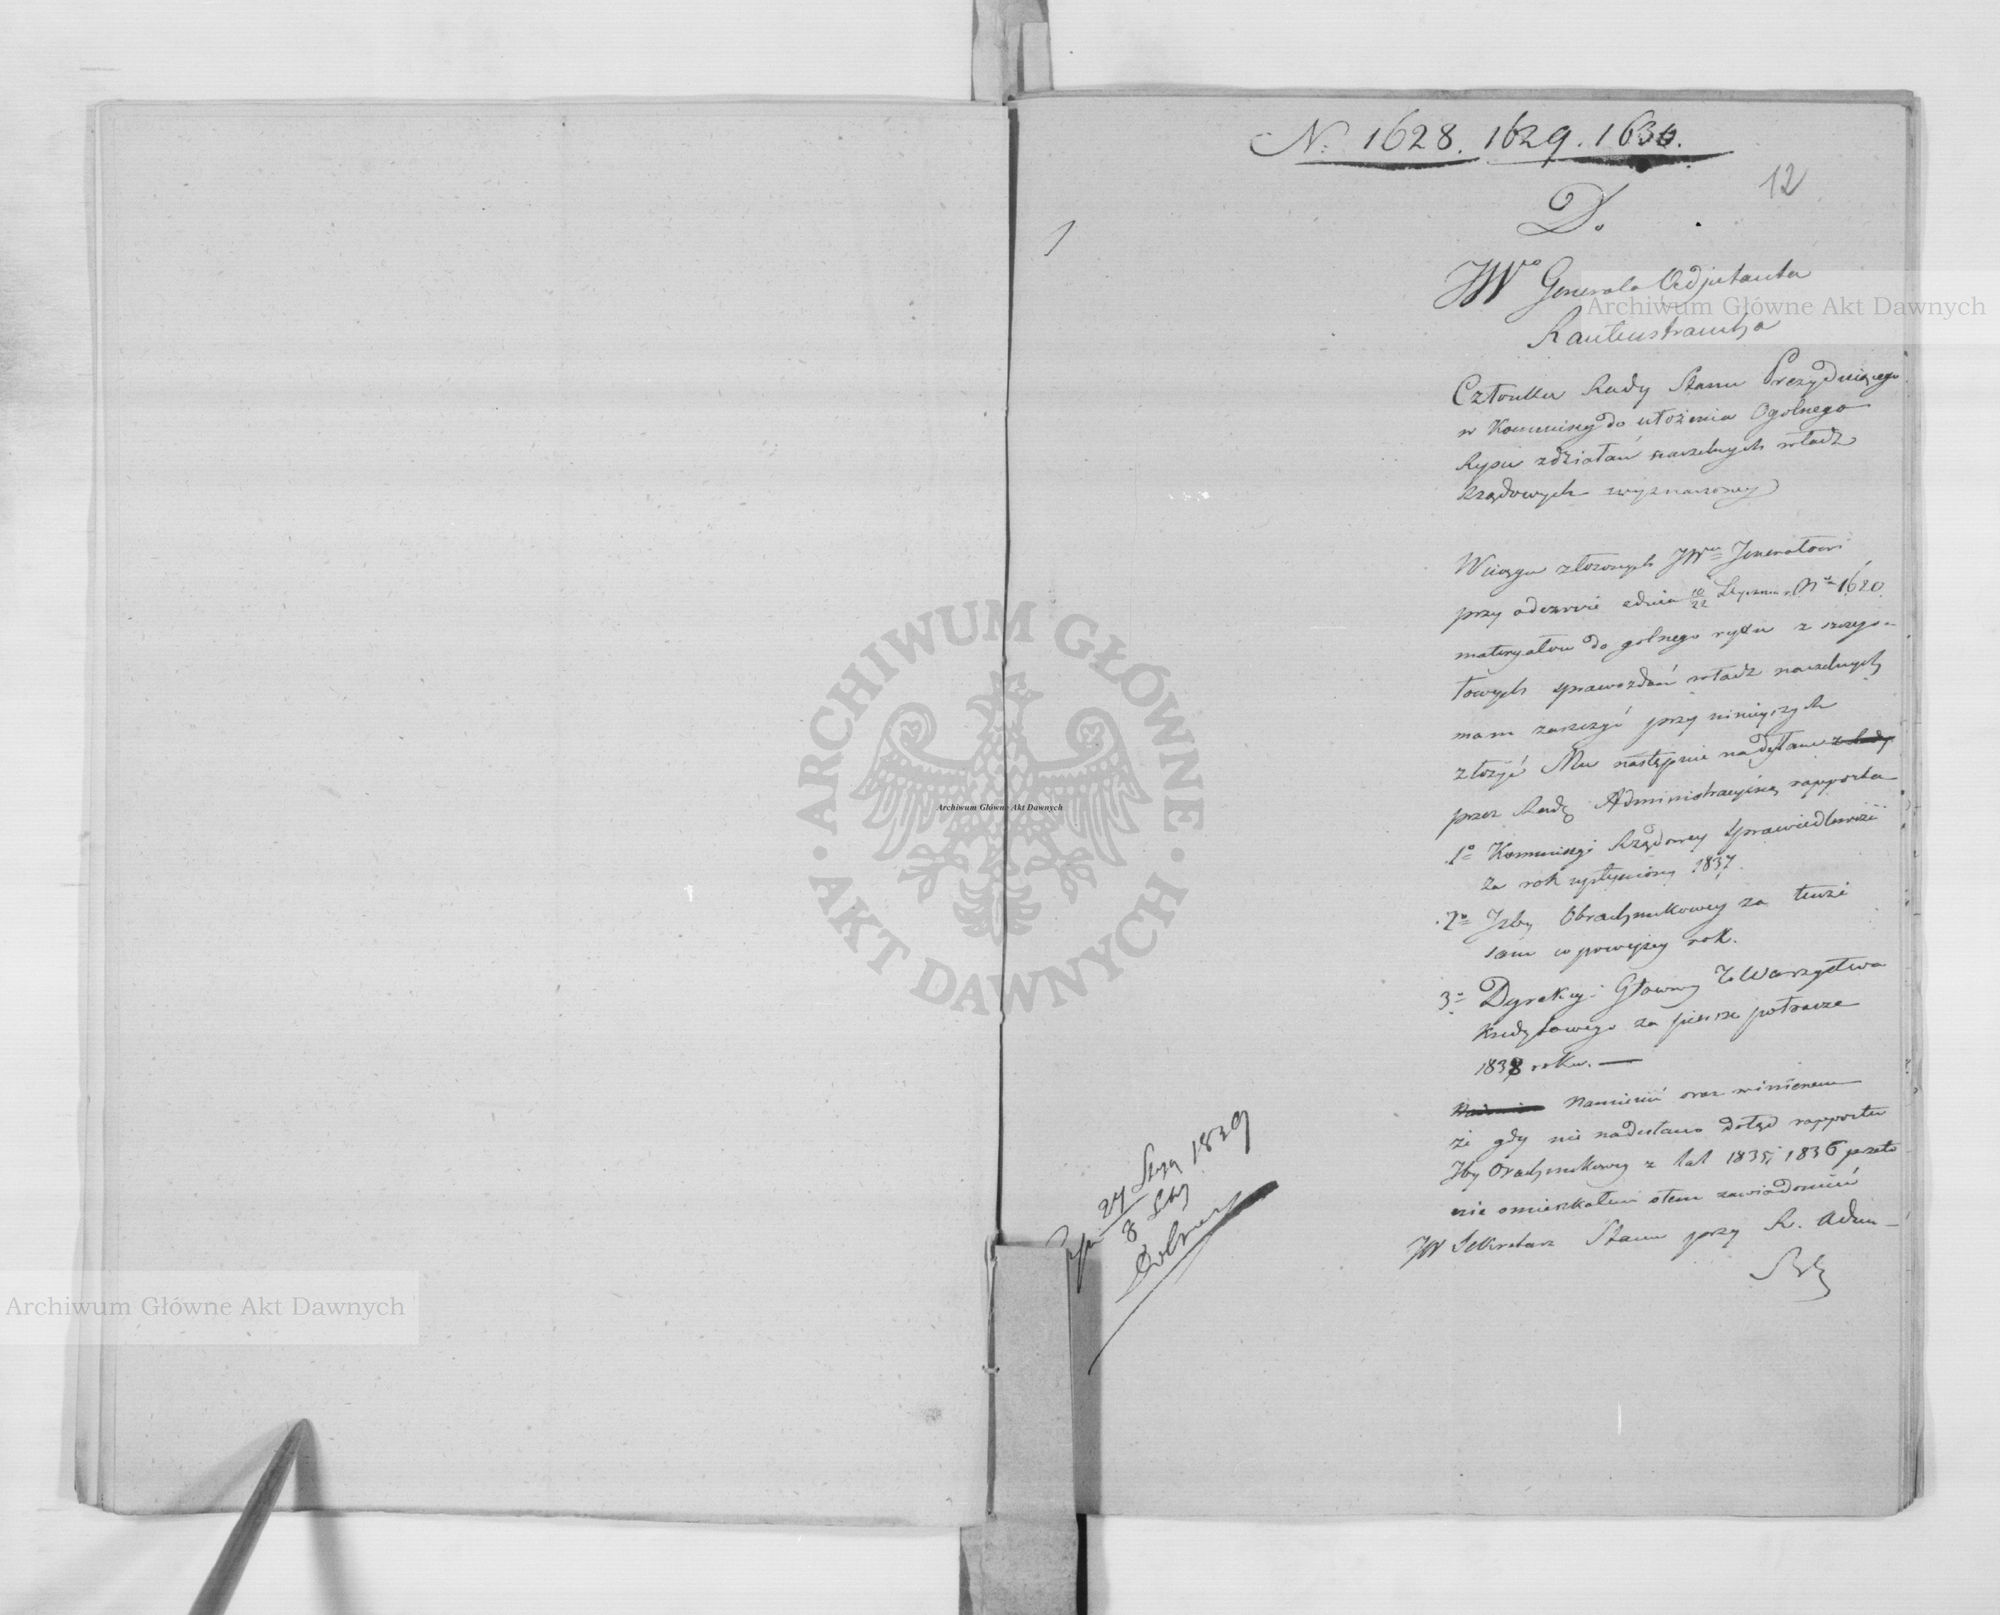 N. 1628. 1629. 1630.
12
D.
JWo Generała Adjutanta
Rautenstraucha
Członka Rady Stanu Prezydującego
w Kommissyi do ułożenia Ogolnego
Rysu zdziałań naczelnych władz
Rządowych wyznaczoney
W ciągu złożonych JWu Jenerałowi
przy odezwie zdnia 10/22 Stycznia r. No 1620
materyałow do golnego rysu z szczegó-
łowych sprawozdań władz naczelnych
mam zaszczyt przy ninieyszych
złożyć Mu następnie nadesłane
przez Radę Administracyiną rapporta
1o Kommissyi Rządowey Sprawiedliwości
za rok upłyniony 1837.
2o Izby Obrachunkowey za tenże
sam co powyżey rok.
3o Dyrekcyi Głowney Towarzystwa
Kredytowego za piersze połrocze
1838 roku. —
Namienić oraz winienem
że gdy nie nadesłano dotąd rapportu
Izby Orachunkowey z lat 1835 i 1836 przeto
nie omieszkałem otem zawiadomić
JW Sekretarz Stanu przy R. Adm-
27 Stycz 1839
8 Lut
Archiwum Główne Akt Dawnych
Archiwum Główne Akt Dawnych
Archiwum Główne Akt Dawnych
ARCHIWUM GŁÓWNE · AKT DAWNYCH ·